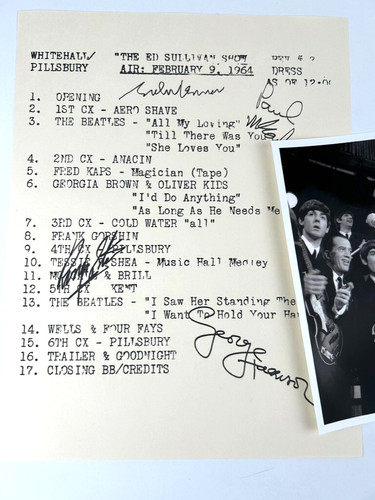 WHITEHALL/ "THE ED SULLIVAN SHOW
PILLSBURY AIR: FEBRUARY 9, 1964 DRESS
AS OF 12:0
1. OPENING
2. 1ST CX - AERO SHAVE
3. THE BEATLES - "All My Loving"
"Till There Was You
"She Loves You"
4. 2ND CX - ANACIN
5. FRED KAPS - Magician (Tape)
6. GEORGIA BROWN & OLIVER KIDS
"I'd Do Anything"
"As Long As He Needs Me
7. 3RD CX - COLD WATER "all"
8. FRANK GORSHIN
9. 4TH CX - PILLSBURY
10. TESSIE O'SHEA - Music Hall Medley
11. & BRILL
12. 5TH CX - KENT
13. THE BEATLES - "I Saw Her Standing The
"I Want To Hold Your Ha
14. WELLS & FOUR FAYS
15. 6TH CX - PILLSBURY
16. TRAILER & GOODNIGHT
17. CLOSING BB/CREDITS
John Lennon
Paul
George
Harrison